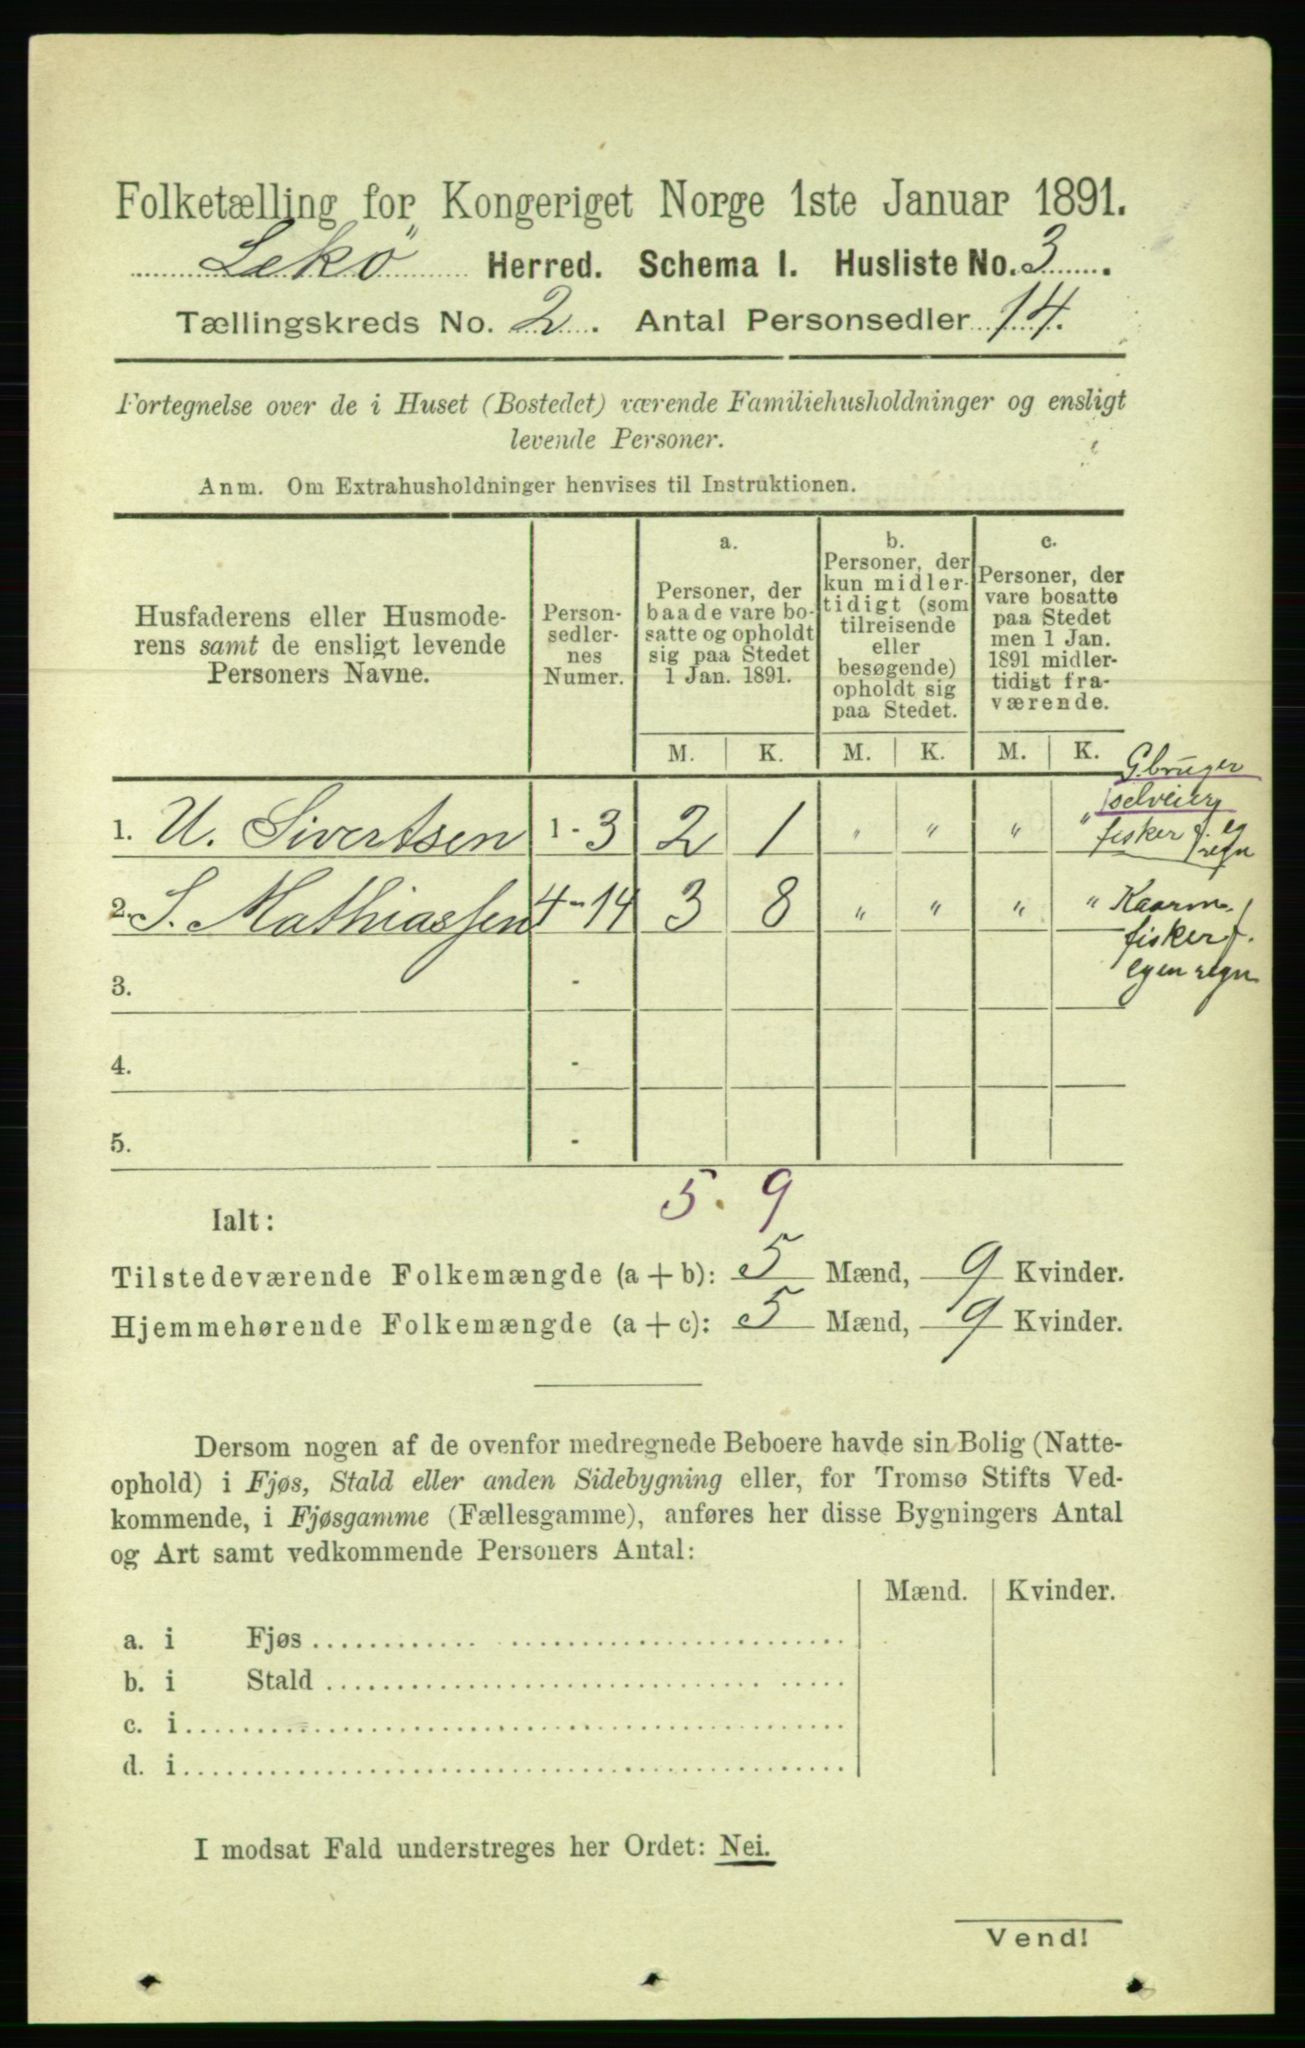 Folketælling for Kongeriget Norge 1ste Januar 1891.
Lekö Herred. Schema I. Husliste No. 3.
Tællingskreds No. 2. Antal Personsedler 14.
Fortegnelse over de i Huset (Bostedet) værende Familiehusholdninger og ensligt
levende Personer.
Anm. Om Extrahusholdninger henvises til Instruktionen.
Husfaderens eller Husmode-
rens samt de ensligt levende
Personers Navne.
Person-
sedler-
nes
Numer.
a.
Personer, der
baade vare bo-
satte og opholdt
sig paa Stedet
1 Jan. 1891.
b.
Personer, der
kun midler-
tidigt (som
tilreisende
eller
besøgende)
opholdt sig
paa Stedet.
c.
Personer, der
vare bosatte
paa Stedet
men 1 Jan.
1891 midler-
tidigt fra-
værende.
M. K. M. K. M. K.
Gbruger
selveier
fisker f. eg
regn
1. U. Sivertsen 1 - 3 2 1 " " " "
2. S. Mathiassen 4 - 14 3 8 " " " " Kaarm.
fisker f.
egen regn
3. -
4. -
5. -
5. 9
Ialt:
Tilstedeværende Folkemængde (a + b): 5 Mænd, 9 Kvinder.
Hjemmehørende Folkemængde (a + c): 5 Mænd, 9 Kvinder.
Dersom nogen af de ovenfor medregnede Beboere havde sin Bolig (Natte-
ophold) i Fjøs, Stald eller anden Sidebygning eller, for Tromsø Stifts Ved-
kommende, i Fjøsgamme (Fællesgamme), anføres her disse Bygningers Antal
og Art samt vedkommende Personers Antal:
Mænd. Kvinder.
a. i Fjøs
b. i Stald
c. i
d. i
I modsat Fald understreges her Ordet: Nei.
Vend!